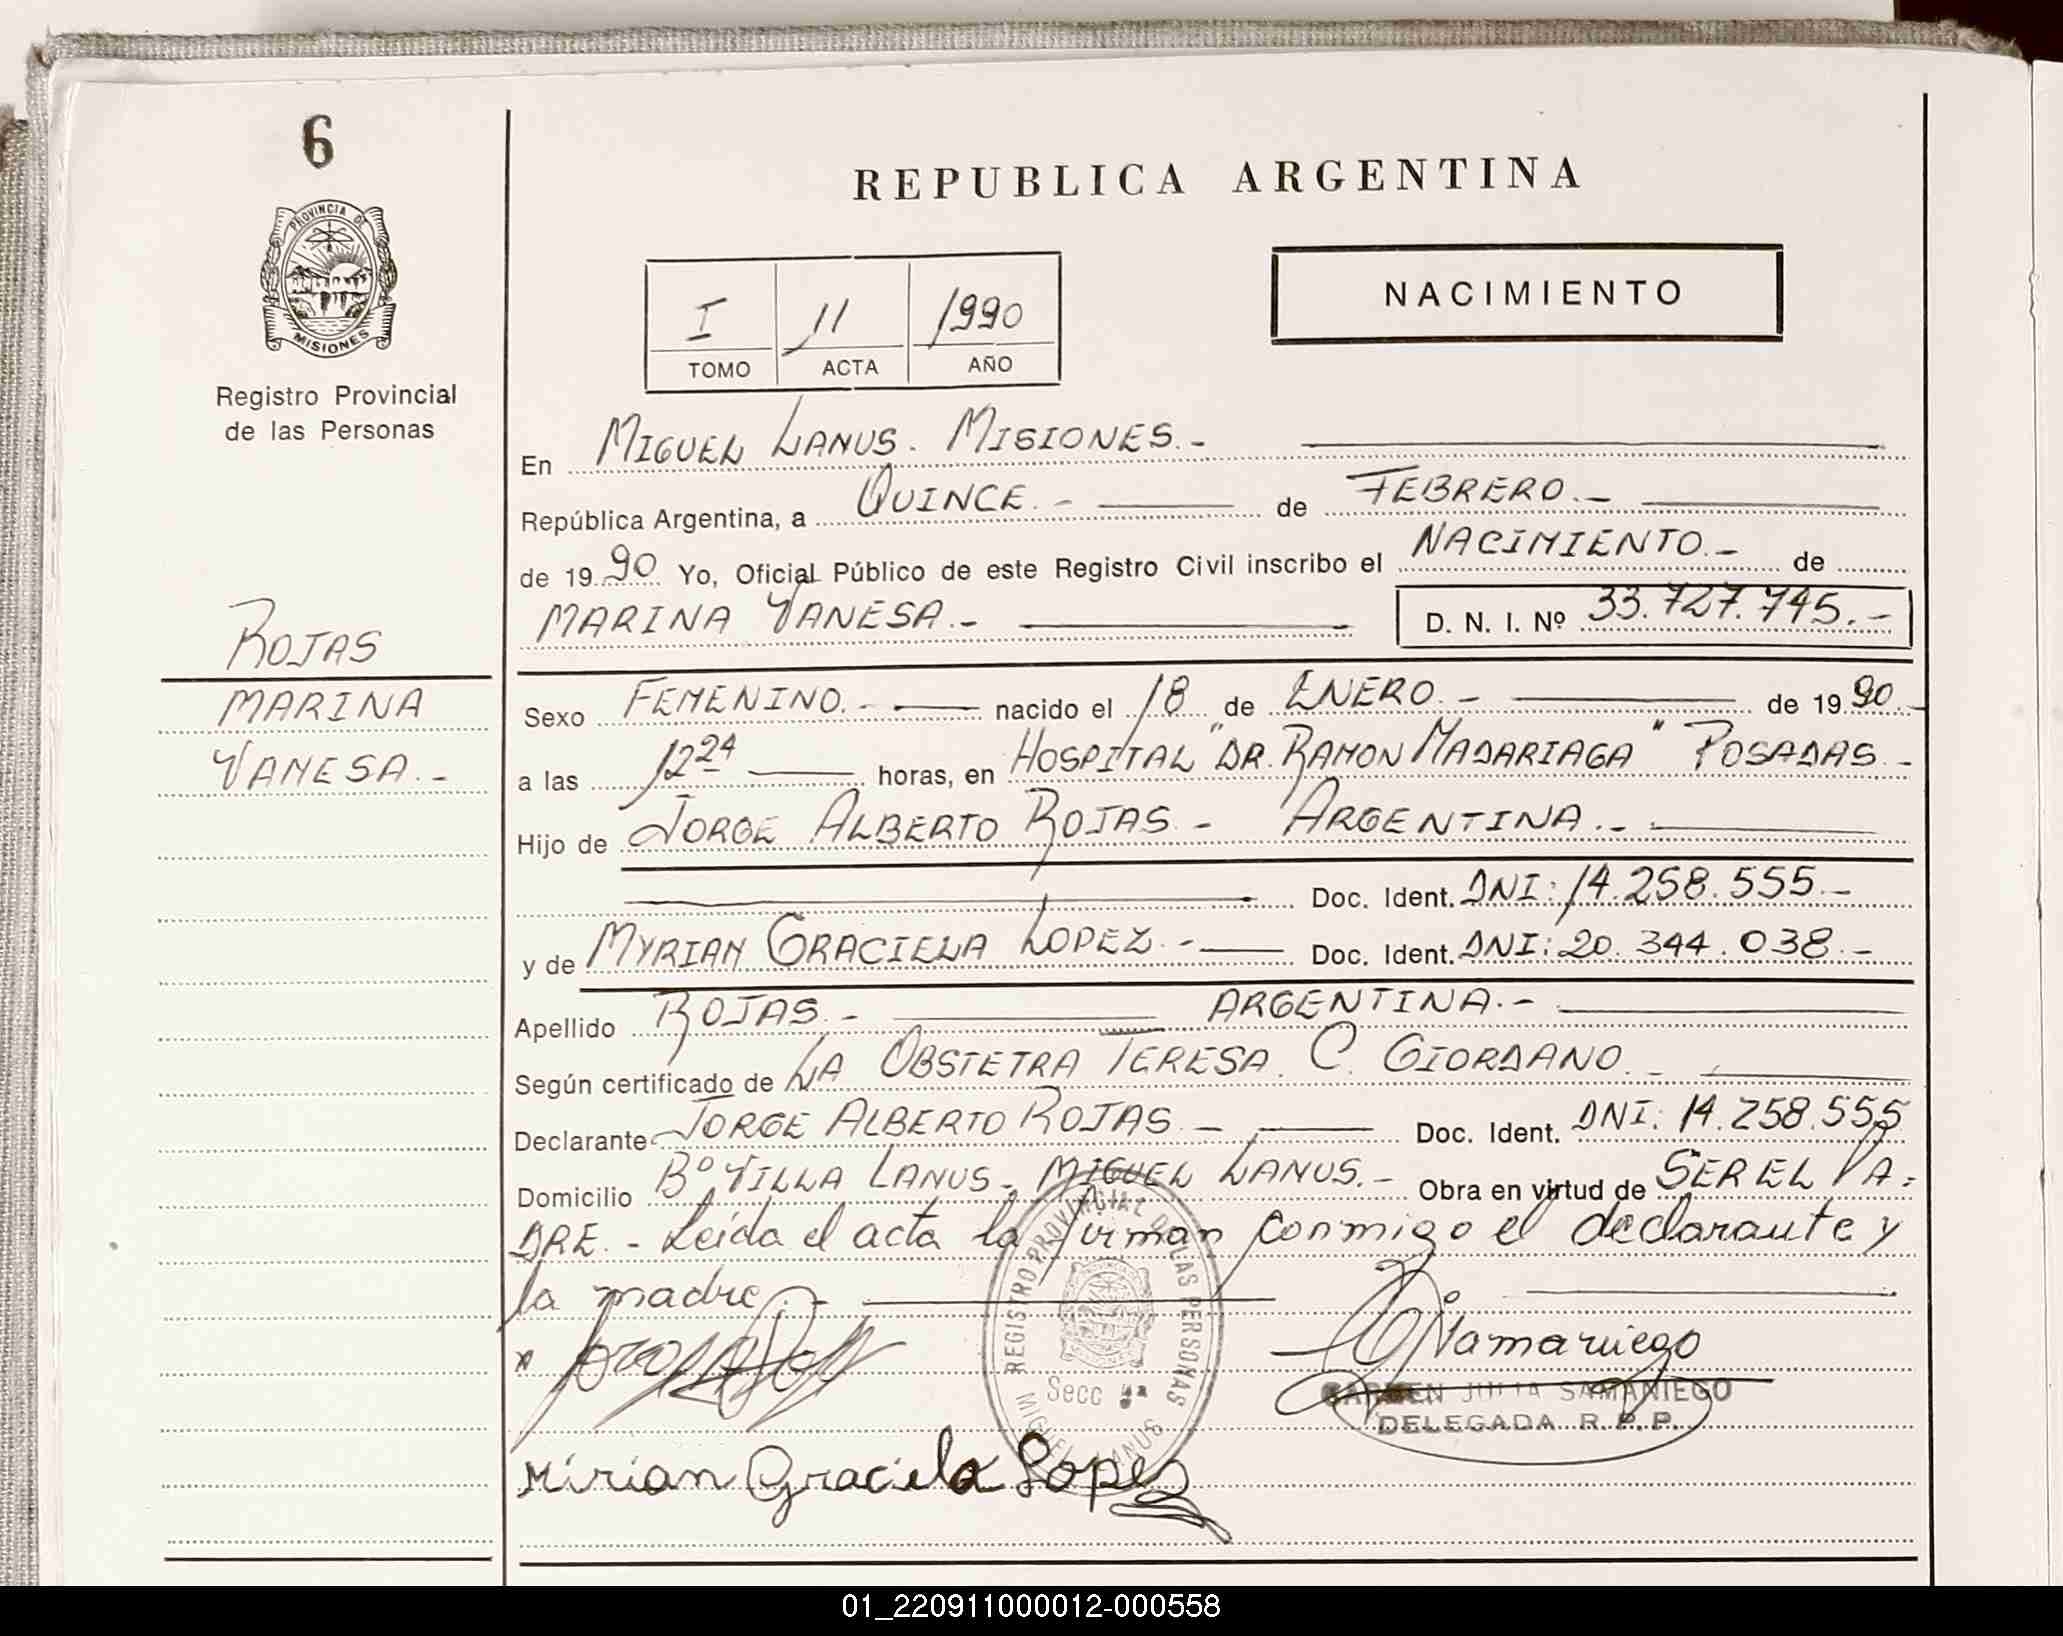 6
PROVINCIA DE
MISIONES
Registro Provincial
de las Personas
ROJAS
MARINA
VANESA.-
REPUBLICA ARGENTINA
I 11 1990
TOMO ACTA AÑO
NACIMIENTO
En MIGUEL LANUS. MISIONES.-
República Argentina, a QUINCE.- de FEBRERO.-
de 1990 Yo, Oficial Público de este Registro Civil inscribo el NACIMIENTO.- de
MARINA VANESA.- D. N. I. Nº 33.727.745.-
Sexo FEMENINO.- nacido el 18 de ENERO.- de 1990.-
a las 12 24 horas, en HOSPITAL "DR. RAMON MADARIAGA" POSADAS.-
Hijo de JORGE ALBERTO ROJAS.- ARGENTINA.-
Doc. Ident. DNI: 14.258.555.-
y de MYRIAN GRACIELA LOPEZ.- Doc. Ident. DNI: 20.344.038.-
Apellido ROJAS.- ARGENTINA.-
Según certificado de LA OBSTETRA TERESA. C. GIORDANO.-
Declarante JORGE ALBERTO ROJAS.- Doc. Ident. DNI: 14.258.555
Domicilio Bº VILLA LANUS - MIGUEL LANUS.- Obra en virtud de SER EL PA=
DRE.- Leída el acta la firman conmigo el declarante y
la madre.-
REGISTRO PROVINCIAL DE LAS PERSONAS
Secc
MIGUEL LANUS
Samaniego
CARMEN JULIA SAMANIEGO
DELEGADA R.P.P.
Mirian Graciela Lopez
01_220911000012-000558